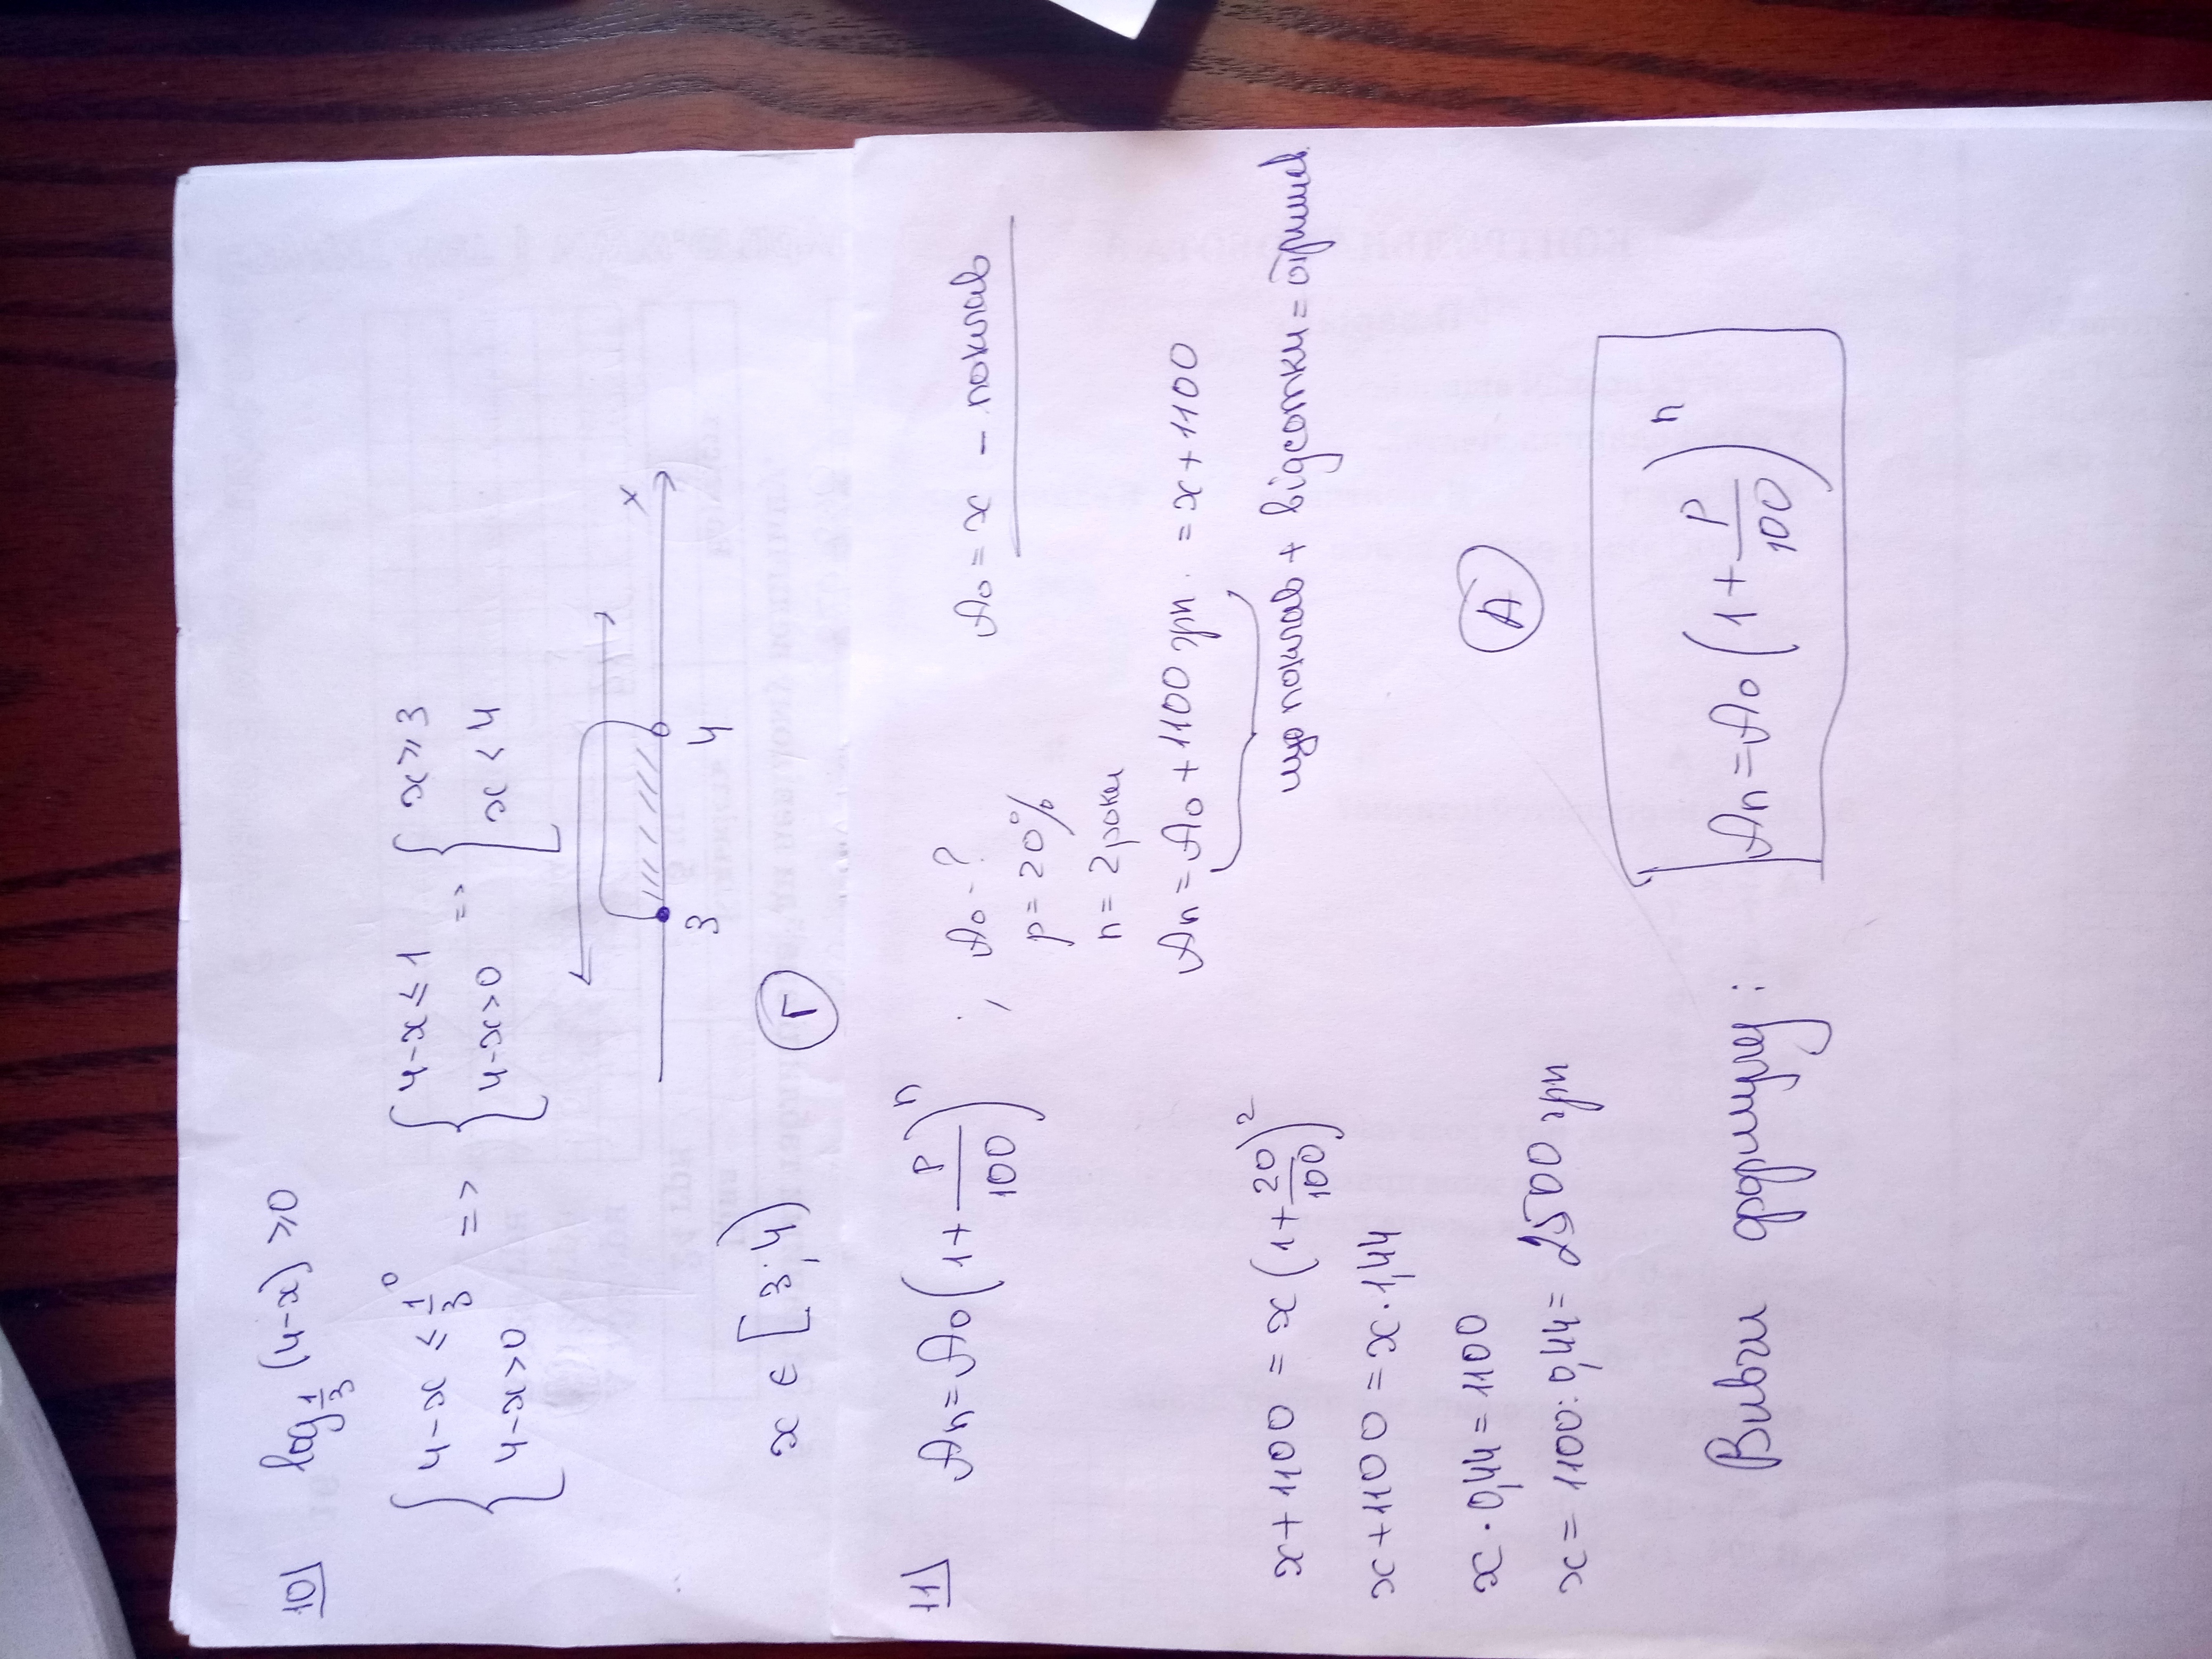 10] log_{1/3} (4-x) ≥ 0
{ 4-x ≤ (1/3)^0 => { 4-x ≤ 1 => { x ≥ 3
{ 4-x > 0 { 4-x > 0 { x < 4
x
3 4
x ∈ [3; 4) Г
11] An = A0 (1 + P/100)^n ; A0 - ? A0 = x - поклав
p = 20%
n = 2 роки
An = A0 + 1100 грн. = x + 1100
що поклав + відсотки = отримав
x + 1100 = x (1 + 20/100)^2
x + 1100 = x · 1,44
x · 0,44 = 1100
x = 1100 : 0,44 = 2500 грн
А
Вивчи формулу : An = A0 (1 + P/100)^n